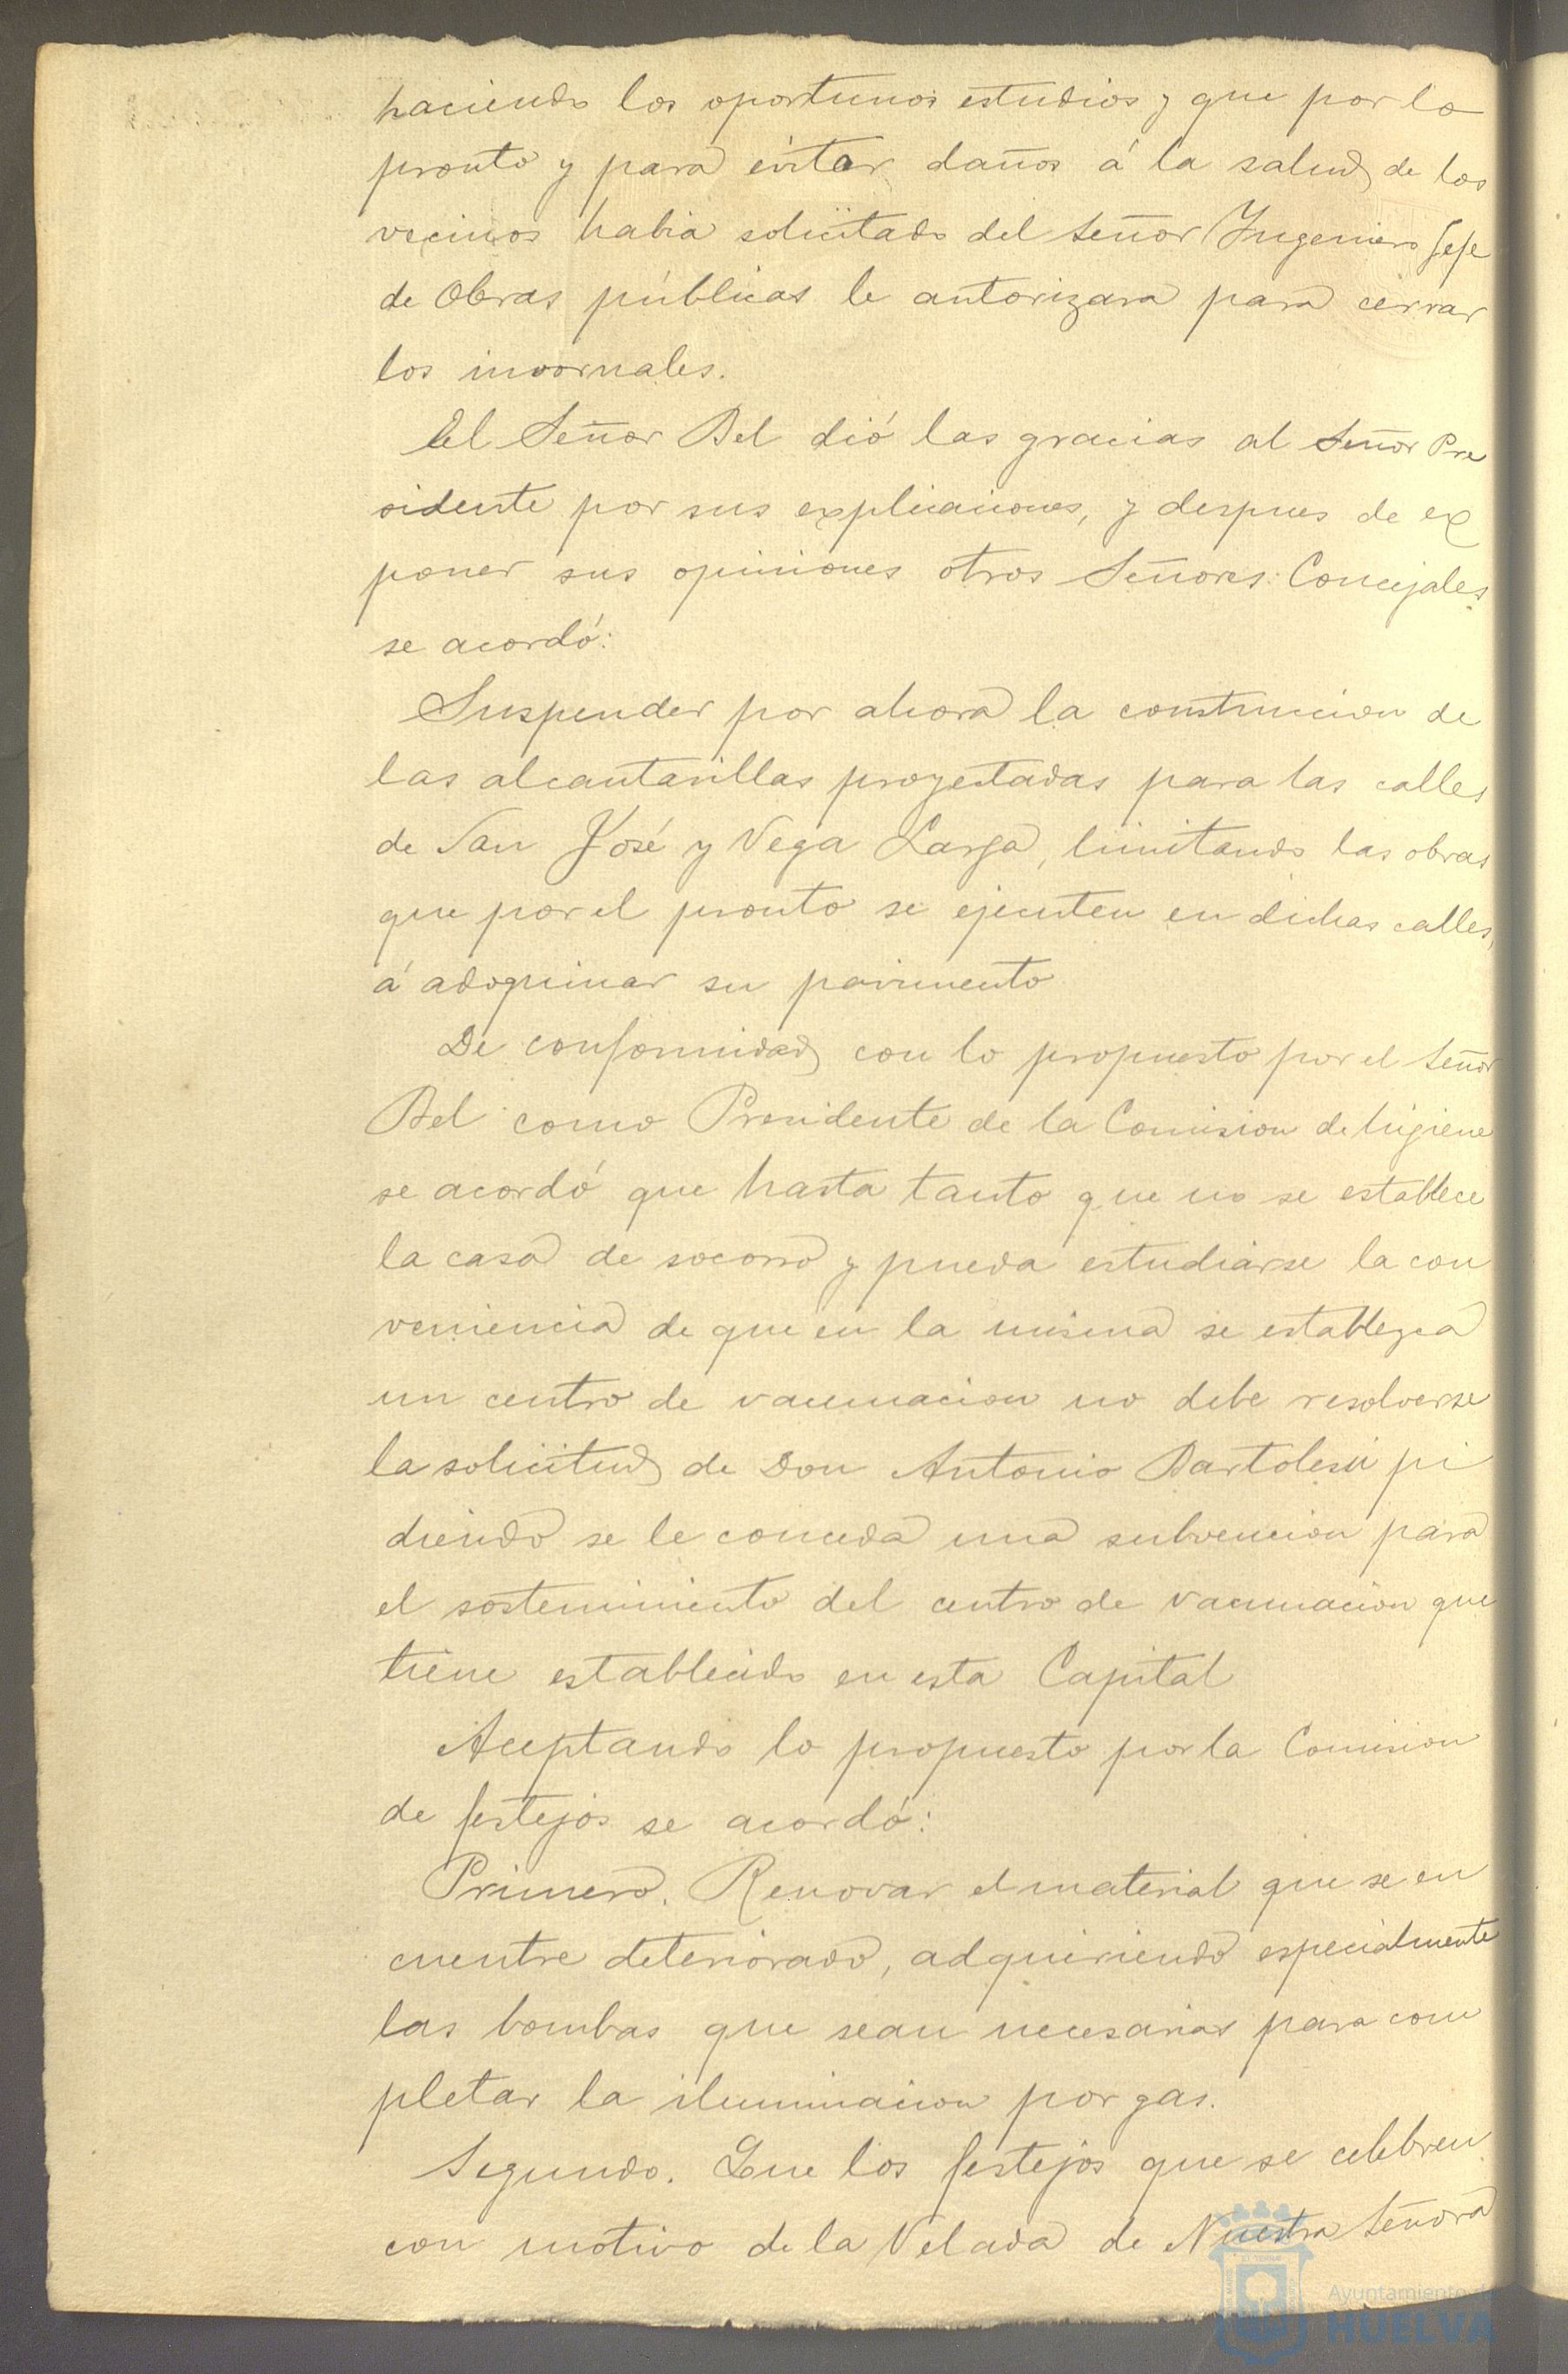 haciendo los oportunos estudios y que por lo
pronto y para evitar daños á la salud de los
vecinos habia solicitado del Señor Yngeniero Jefe
de Obras públicas le autorizara para cerrar
los invornales.
El Señor Bel dió las gracias al Señor Pre
sidente por sus explicaciones, y despues de ex
poner sus opiniones otros Señores Concejales
se acordó:
Suspender por ahora la construccion de
las alcantarillas proyectadas para las calles
de San José y Vega Larga, limitando las obras
que por el pronto se ejecuten en dichas calles,
á adoquinar su pavimento
De conformidad con lo propuesto por el Señor
Bel como Presidente de la Comision de higiene
se acordó que hasta tanto que no se establece
la casa de socorro y pueda estudiarse la con
veniencia de que en la misma se establezca
un centro de vacunacion no debe resolverse
la solicitud de Don Antonio Bartolesii pi
diendo se le conceda una subvencion para
el sostenimiento del centro de vacunacion que
tiene establecido en esta Capital
Aceptando lo propuesto por la Comision
de festejos se acordó:
Primero. Renovar el material que se en
cuentre deteriorado, adquiriendo especialmente
las bombas que sean necesarias para com
pletar la iluminacion por gas.
Segundo. Que los festejos que se celebren
con motivo de la Velada de Nuestra Señora
Ayuntamiento de
HUELVA